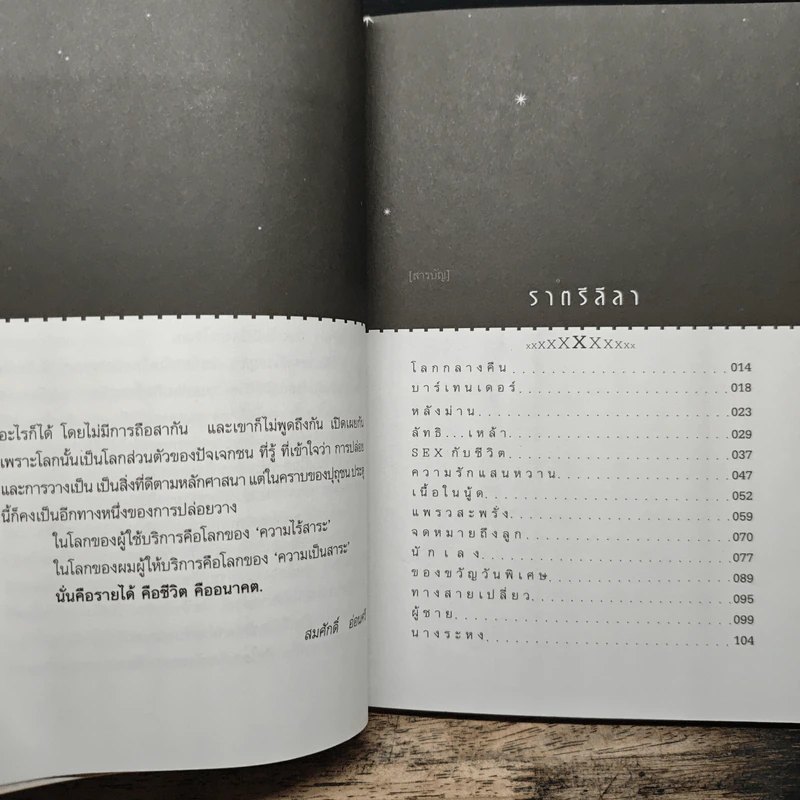 อะไรก็ได้ โดยไม่มีการถือสากัน และเขาก็ไม่พูดถึงกัน เปิดเผยกัน
เพราะโลกนั้นเป็นโลกส่วนตัวของปัจเจกชน ที่รู้ ที่เข้าใจว่า การปล่อย
และการวางเป็น เป็นสิ่งที่ดีตามหลักศาสนา แต่ในคราบของปุถุชน ประตู
นี้ก็คงเป็นอีกทางหนึ่งของการปล่อยวาง
ในโลกของผู้ใช้บริการคือโลกของ ‘ความไร้สาระ’
ในโลกของผมผู้ให้บริการคือโลกของ ‘ความเป็นสาระ’
นั่นคือรายได้ คือชีวิต คืออนาคต.
สมศักดิ์
[สารบัญ]
ราตรีลีลา
xxXXXXXXXxxx
โลกกลางคืน 014
บาร์เทนเดอร์ 018
หลังม่าน 023
ลัทธิ...เหล้า 029
SEX กับชีวิต 037
ความรักแสนหวาน 047
เนื้อในนู้ด 052
แพรวสะพรั่ง 059
จดหมายถึงลูก 070
นักเลง 077
ของขวัญวันพิเศษ 089
ทางสายเปลี่ยว 095
ผู้ชาย 099
นางระหง 104